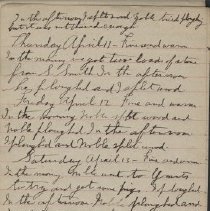 In the afternoon I split and Noble tried plowing
but it was
Thursday April 11 - Fine and warm
In the morning we got two loads of
from S. Smith In the afternoon
he plowed and I split wood
Friday April 12 Fine and warm
In the morning Noble split wood and
Noble plowed In the afternoon
I plowed and Noble split wood
Saturday April 13 - Fine and warm
In the morning Noble went to
to try and get some I plowed
In the afternoon Noble plowed and